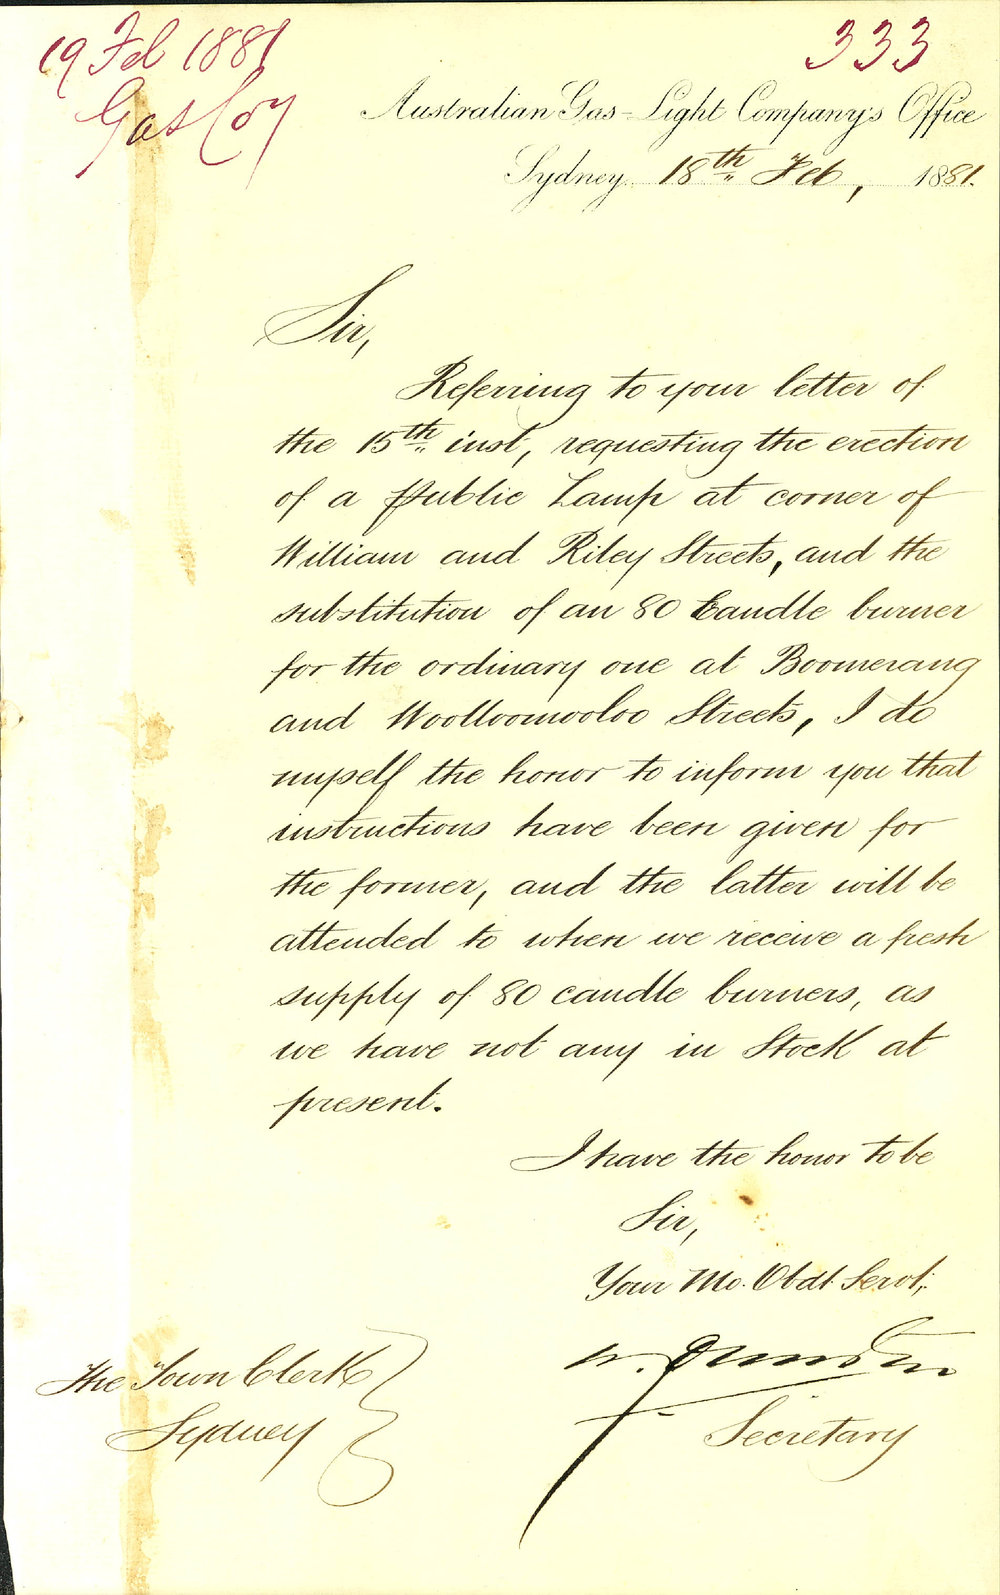 19 Feb 1881
Gas Coy
333
Australian Gas-Light Company's Office
Sydney 18th Feb, 1881.
Sir,
Referring to your letter of
the 15th inst, requesting the erection
of a Public Lamp at corner of
William and Riley Streets, and the
substitution of an 80 Candle burner
for the ordinary one at Boomerang
and Woolloomooloo Streets, I do
myself the honor to inform you that
instructions have been given for
the former, and the latter will be
attended to when we receive a fresh
supply of 80 candle burners, as
we have not any in Stock at
present.
I have the honor to be
Sir,
Your Mo. Obdt Servt,
Secretary
The Town Clerk
Sydney